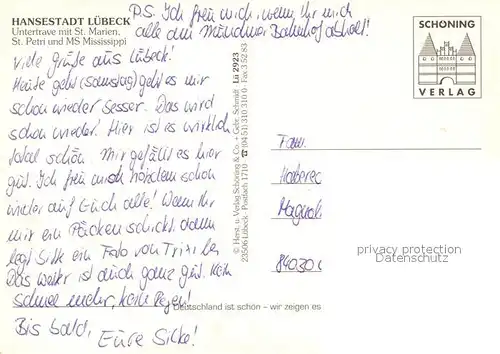 HANSESTADT LÜBECK
Untertrave mit St. Marien,
St. Petri und MS Mississippi
P.S. Ich freu mich, wenn Ihr mich
alle am Münchner Bahnhof abholt!
Viele Grüße aus Lübeck!
Heute geht (Samstag) geht es mir
schon wieder besser. Das wird
schon wieder! Hier ist es wirklich
total schön. Mir gefällt es hier
gut. Ich freu mich trotzdem schon
wieder auf Euch alle! Wenn Ihr
mir ein Päckchen schickt, dann
legt bitte ein Foto von Trixi bei
Das Wetter ist auch ganz gut. Kein
Schnee mehr, kein Regen!
Bis bald,
Eure Silke!
© Herst. u. Verlag Schöning & Co. + Gebr. Schmidt
23506 Lübeck · Postfach 1710 ☎ (04 51) 310 310 0 · Fax 3 52 83
Lü 2923
SCHÖNING
VERLAG
Fam.
84030
privacy protection
Deutschland ist schön – wir zeigen es